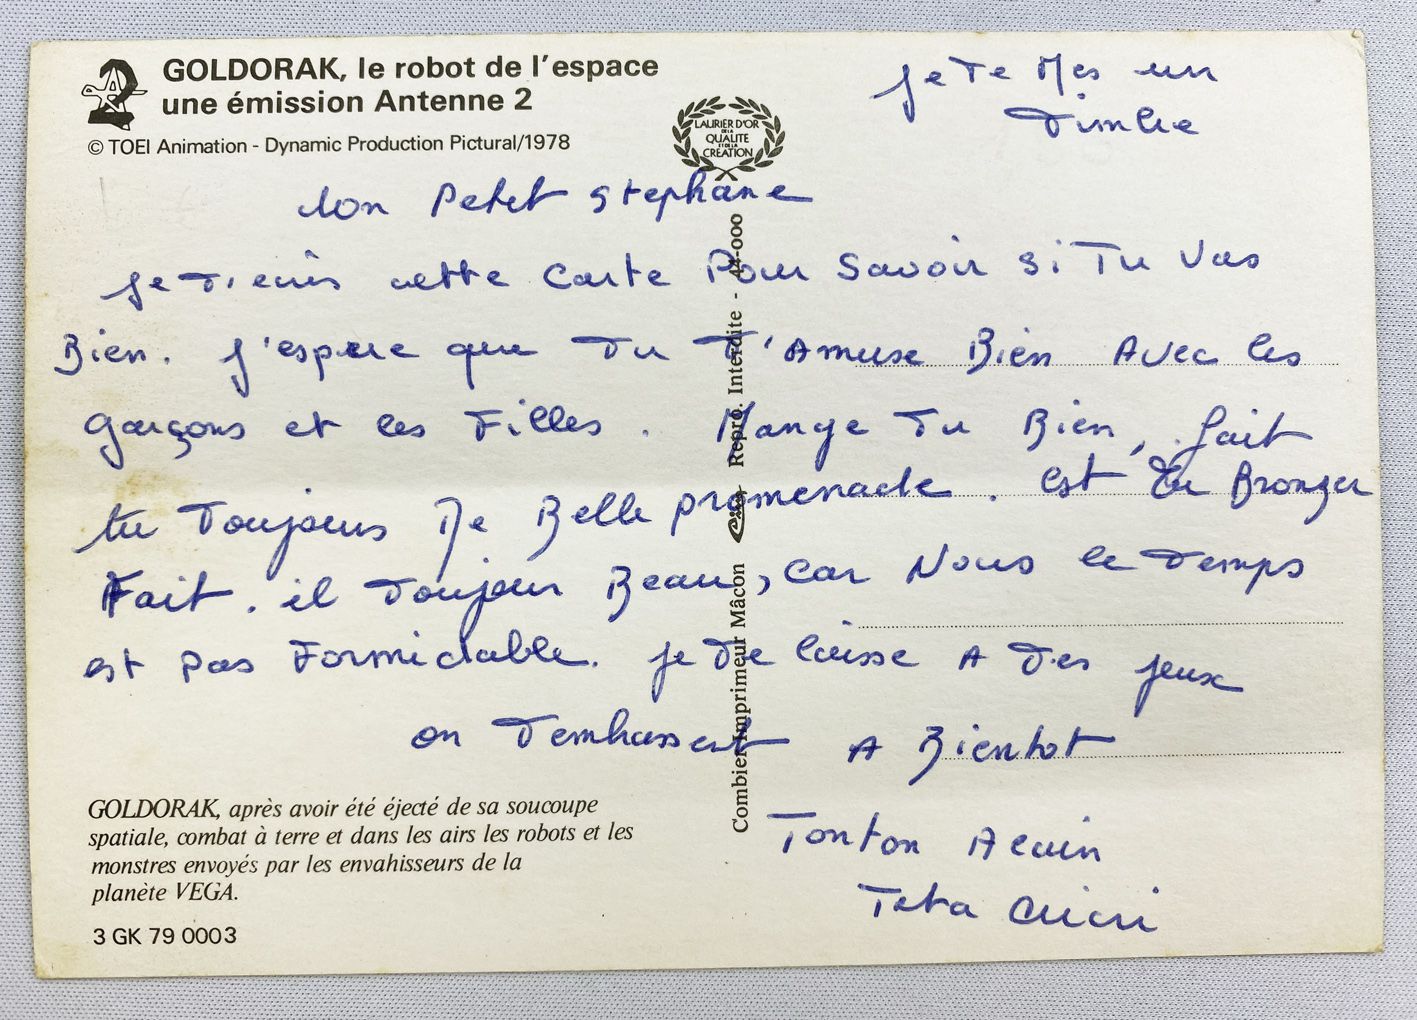 GOLDORAK, le robot de l'espace
une émission Antenne 2
© TOEI Animation - Dynamic Production Pictural/1978
LAURIER D'OR
DE LA
QUALITE
ET DE LA
CREATION
Je Te Mes un
Timbre
Mon Petit Stephane
Je T'ecris cette Carte Pour Savoir si Tu Vas
Bien. J'espere que Tu T'Amuse Bien Avec les
garçons et les Filles. Mange Tu Bien, fait
tu Toujours De Belle promenade. est Tu Bronzer
Fait. il Toujour Beau, car Nous le Temps
est pas Formidable. Je Te laisse A Tes jeux
on T'embrassent A Bientot
Tonton Alain
Tata Cricri
GOLDORAK, après avoir été éjecté de sa soucoupe
spatiale, combat à terre et dans les airs les robots et les
monstres envoyés par les envahisseurs de la
planète VEGA.
3 GK 79 0003
Combier Imprimeur Mâcon Repro. Interdite - 44-000